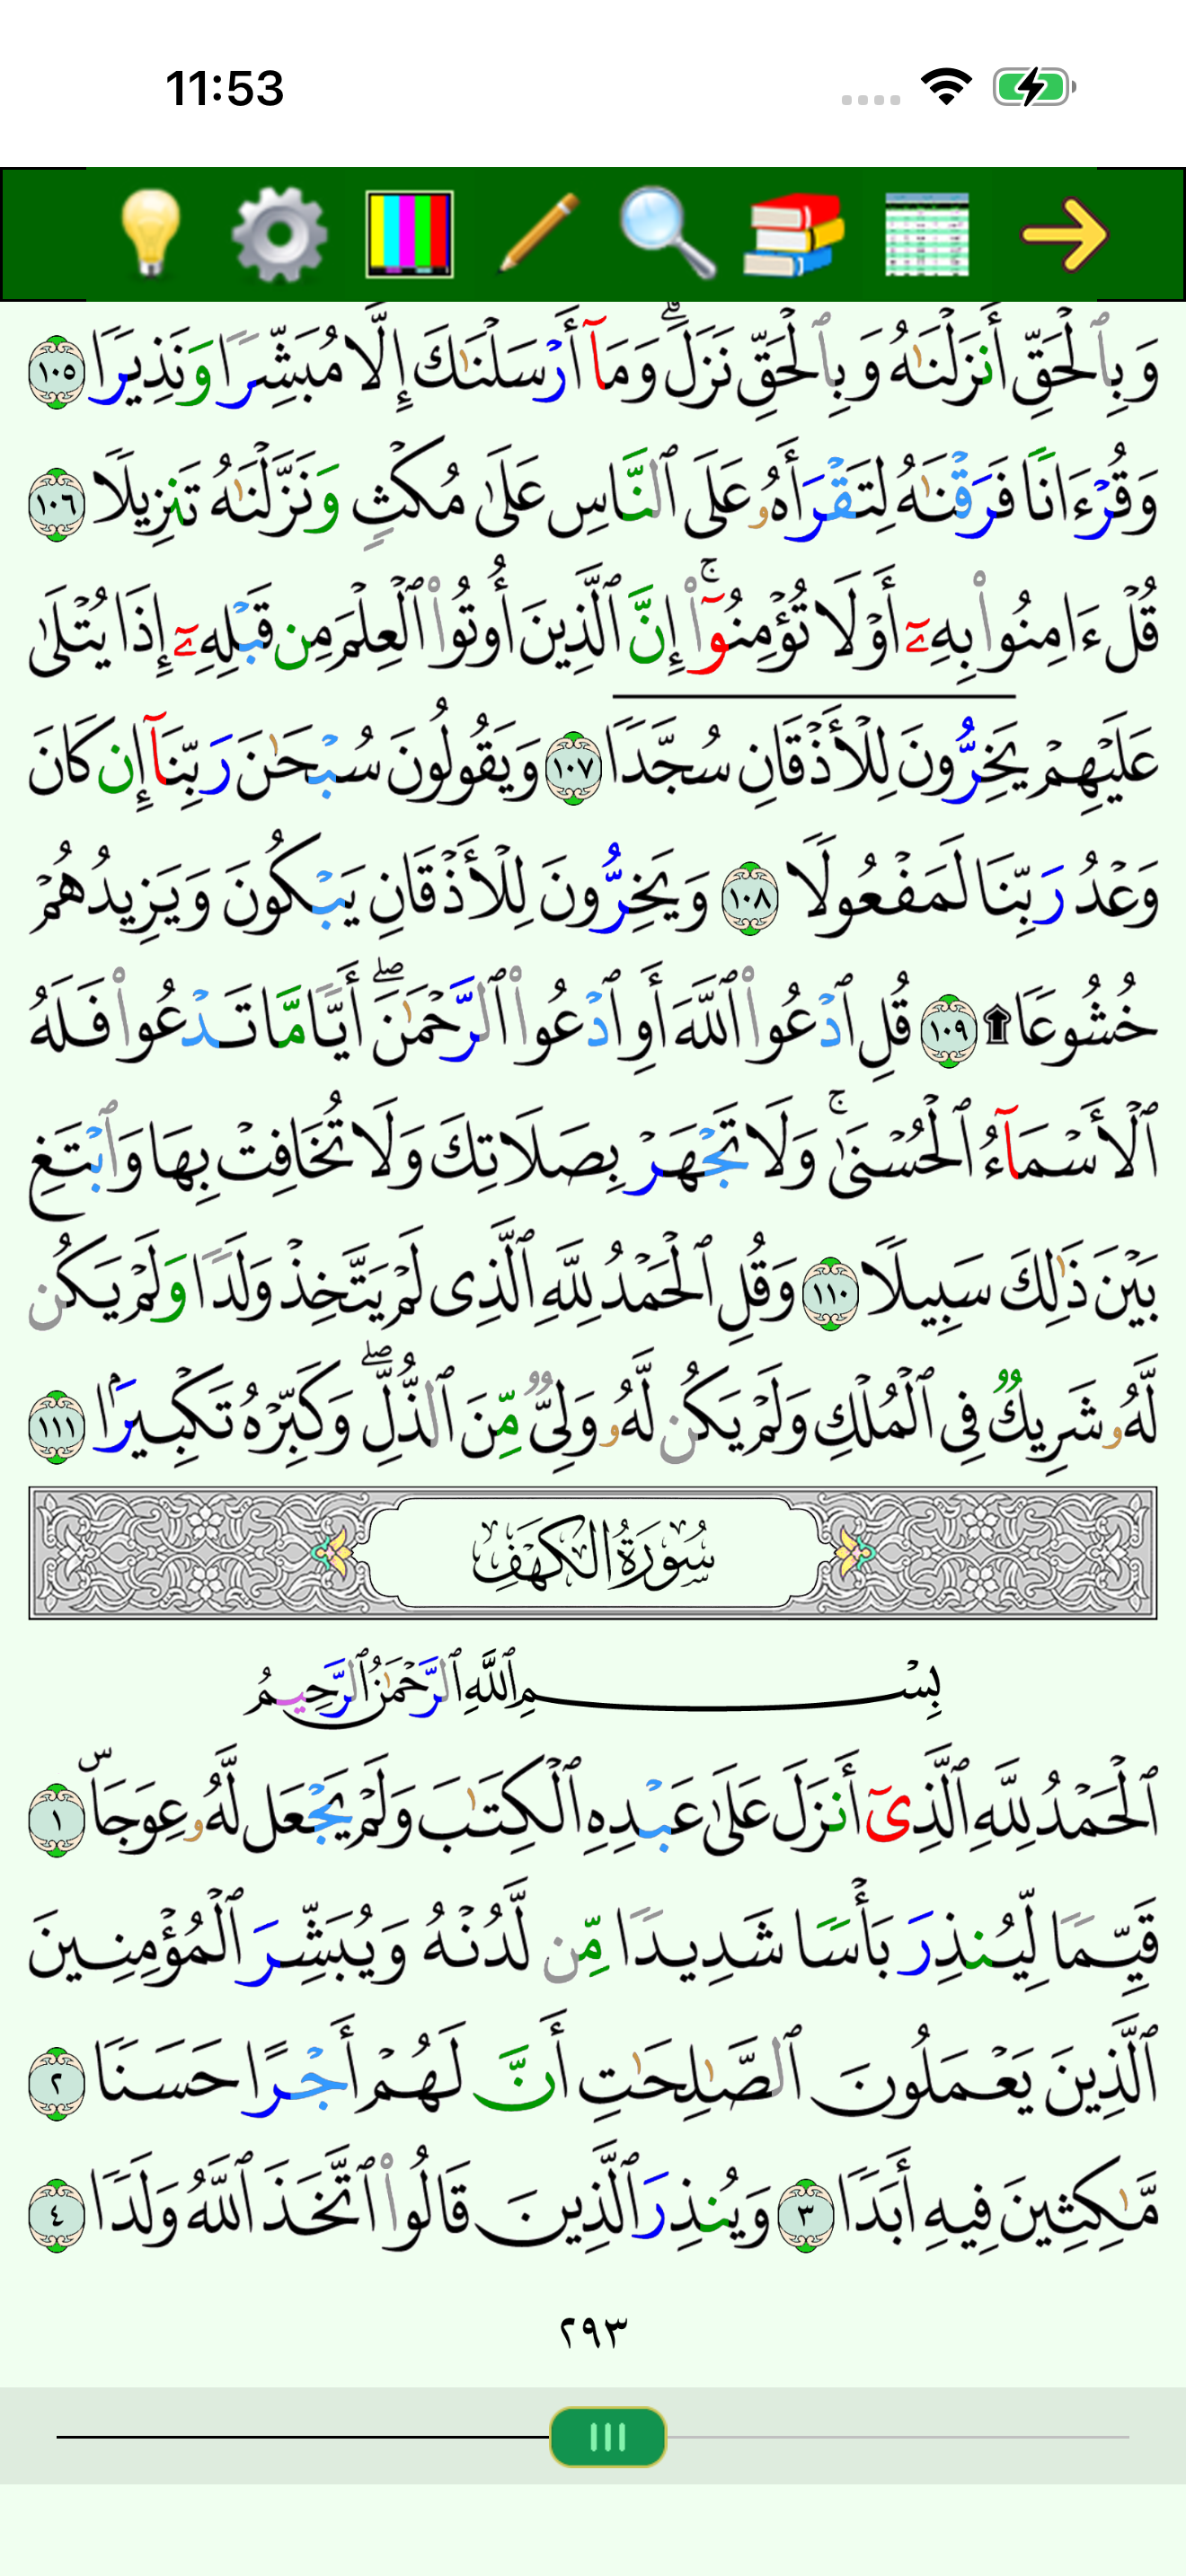 11:53
وَبِٱلْحَقِّ أَنزَلْنَـٰهُ وَبِٱلْحَقِّ نَزَلَ ۗ وَمَآ أَرْسَلْنَـٰكَ إِلَّا مُبَشِّرًا وَنَذِيرًا ١٠٥
وَقُرْءَانًا فَرَقْنَـٰهُ لِتَقْرَأَهُۥ عَلَى ٱلنَّاسِ عَلَىٰ مُكْثٍ وَنَزَّلْنَـٰهُ تَنزِيلًا ١٠٦
قُلْ ءَامِنُوا۟ بِهِۦٓ أَوْ لَا تُؤْمِنُوٓا۟ ۚ إِنَّ ٱلَّذِينَ أُوتُوا۟ ٱلْعِلْمَ مِن قَبْلِهِۦٓ إِذَا يُتْلَىٰ
عَلَيْهِمْ يَخِرُّونَ لِلْأَذْقَانِ سُجَّدًا ١٠٧ وَيَقُولُونَ سُبْحَـٰنَ رَبِّنَآ إِن كَانَ
وَعْدُ رَبِّنَا لَمَفْعُولًا ١٠٨ وَيَخِرُّونَ لِلْأَذْقَانِ يَبْكُونَ وَيَزِيدُهُمْ
خُشُوعًا ۩ ١٠٩ قُلِ ٱدْعُوا۟ ٱللَّهَ أَوِ ٱدْعُوا۟ ٱلرَّحْمَـٰنَ ۖ أَيًّا مَّا تَدْعُوا۟ فَلَهُ
ٱلْأَسْمَآءُ ٱلْحُسْنَىٰ ۚ وَلَا تَجْهَرْ بِصَلَاتِكَ وَلَا تُخَافِتْ بِهَا وَٱبْتَغِ
بَيْنَ ذَٰلِكَ سَبِيلًا ١١٠ وَقُلِ ٱلْحَمْدُ لِلَّهِ ٱلَّذِى لَمْ يَتَّخِذْ وَلَدًا وَلَمْ يَكُن
لَّهُۥ شَرِيكٌ فِى ٱلْمُلْكِ وَلَمْ يَكُن لَّهُۥ وَلِىٌّ مِّنَ ٱلذُّلِّ ۖ وَكَبِّرْهُ تَكْبِيرًۢا ١١١
سُورَةُ الكَهْفِ
بِسْمِ ٱللَّهِ ٱلرَّحْمَـٰنِ ٱلرَّحِيمِ
ٱلْحَمْدُ لِلَّهِ ٱلَّذِىٓ أَنزَلَ عَلَىٰ عَبْدِهِ ٱلْكِتَـٰبَ وَلَمْ يَجْعَل لَّهُۥ عِوَجَا ۜ ١
قَيِّمًا لِّيُنذِرَ بَأْسًا شَدِيدًا مِّن لَّدُنْهُ وَيُبَشِّرَ ٱلْمُؤْمِنِينَ
ٱلَّذِينَ يَعْمَلُونَ ٱلصَّـٰلِحَـٰتِ أَنَّ لَهُمْ أَجْرًا حَسَنًا ٢
مَّـٰكِثِينَ فِيهِ أَبَدًا ٣ وَيُنذِرَ ٱلَّذِينَ قَالُوا۟ ٱتَّخَذَ ٱللَّهُ وَلَدًا ٤
٢٩٣